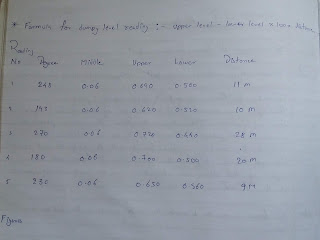 * Formula for dumpy level reading :- Upper level - Lower level x 100 = Distance
Reading
No Degree Middle Upper Lower Distance
1 248 0.06 0.690 0.580 11 m
2 193 0.06 0.620 0.520 10 m
3 270 0.06 0.720 38 m
4 180 0.06 0.700 0.500 20 m
5 230 0.06 0.650 0.560 9 m
Figure